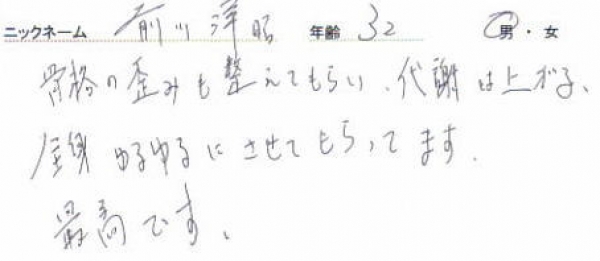 ニックネーム 前川洋昭 年齢 32 男・女
骨格の歪みも整えてもらい、代謝は上がる、
全身ゆるゆるにさせてもらってます。
最高です。